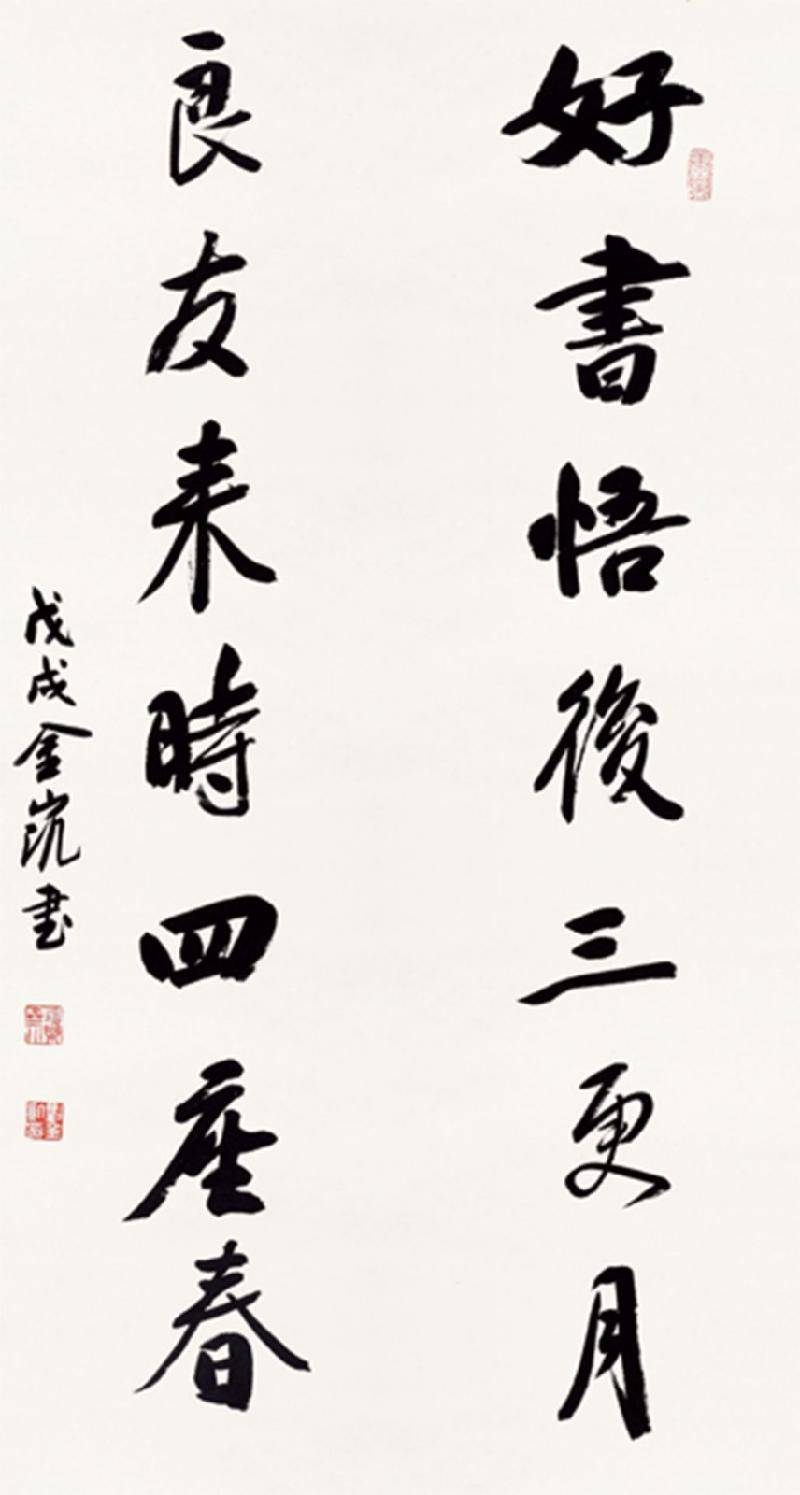 好書悟後三更月
良友来時四座春
戊戌金岚书